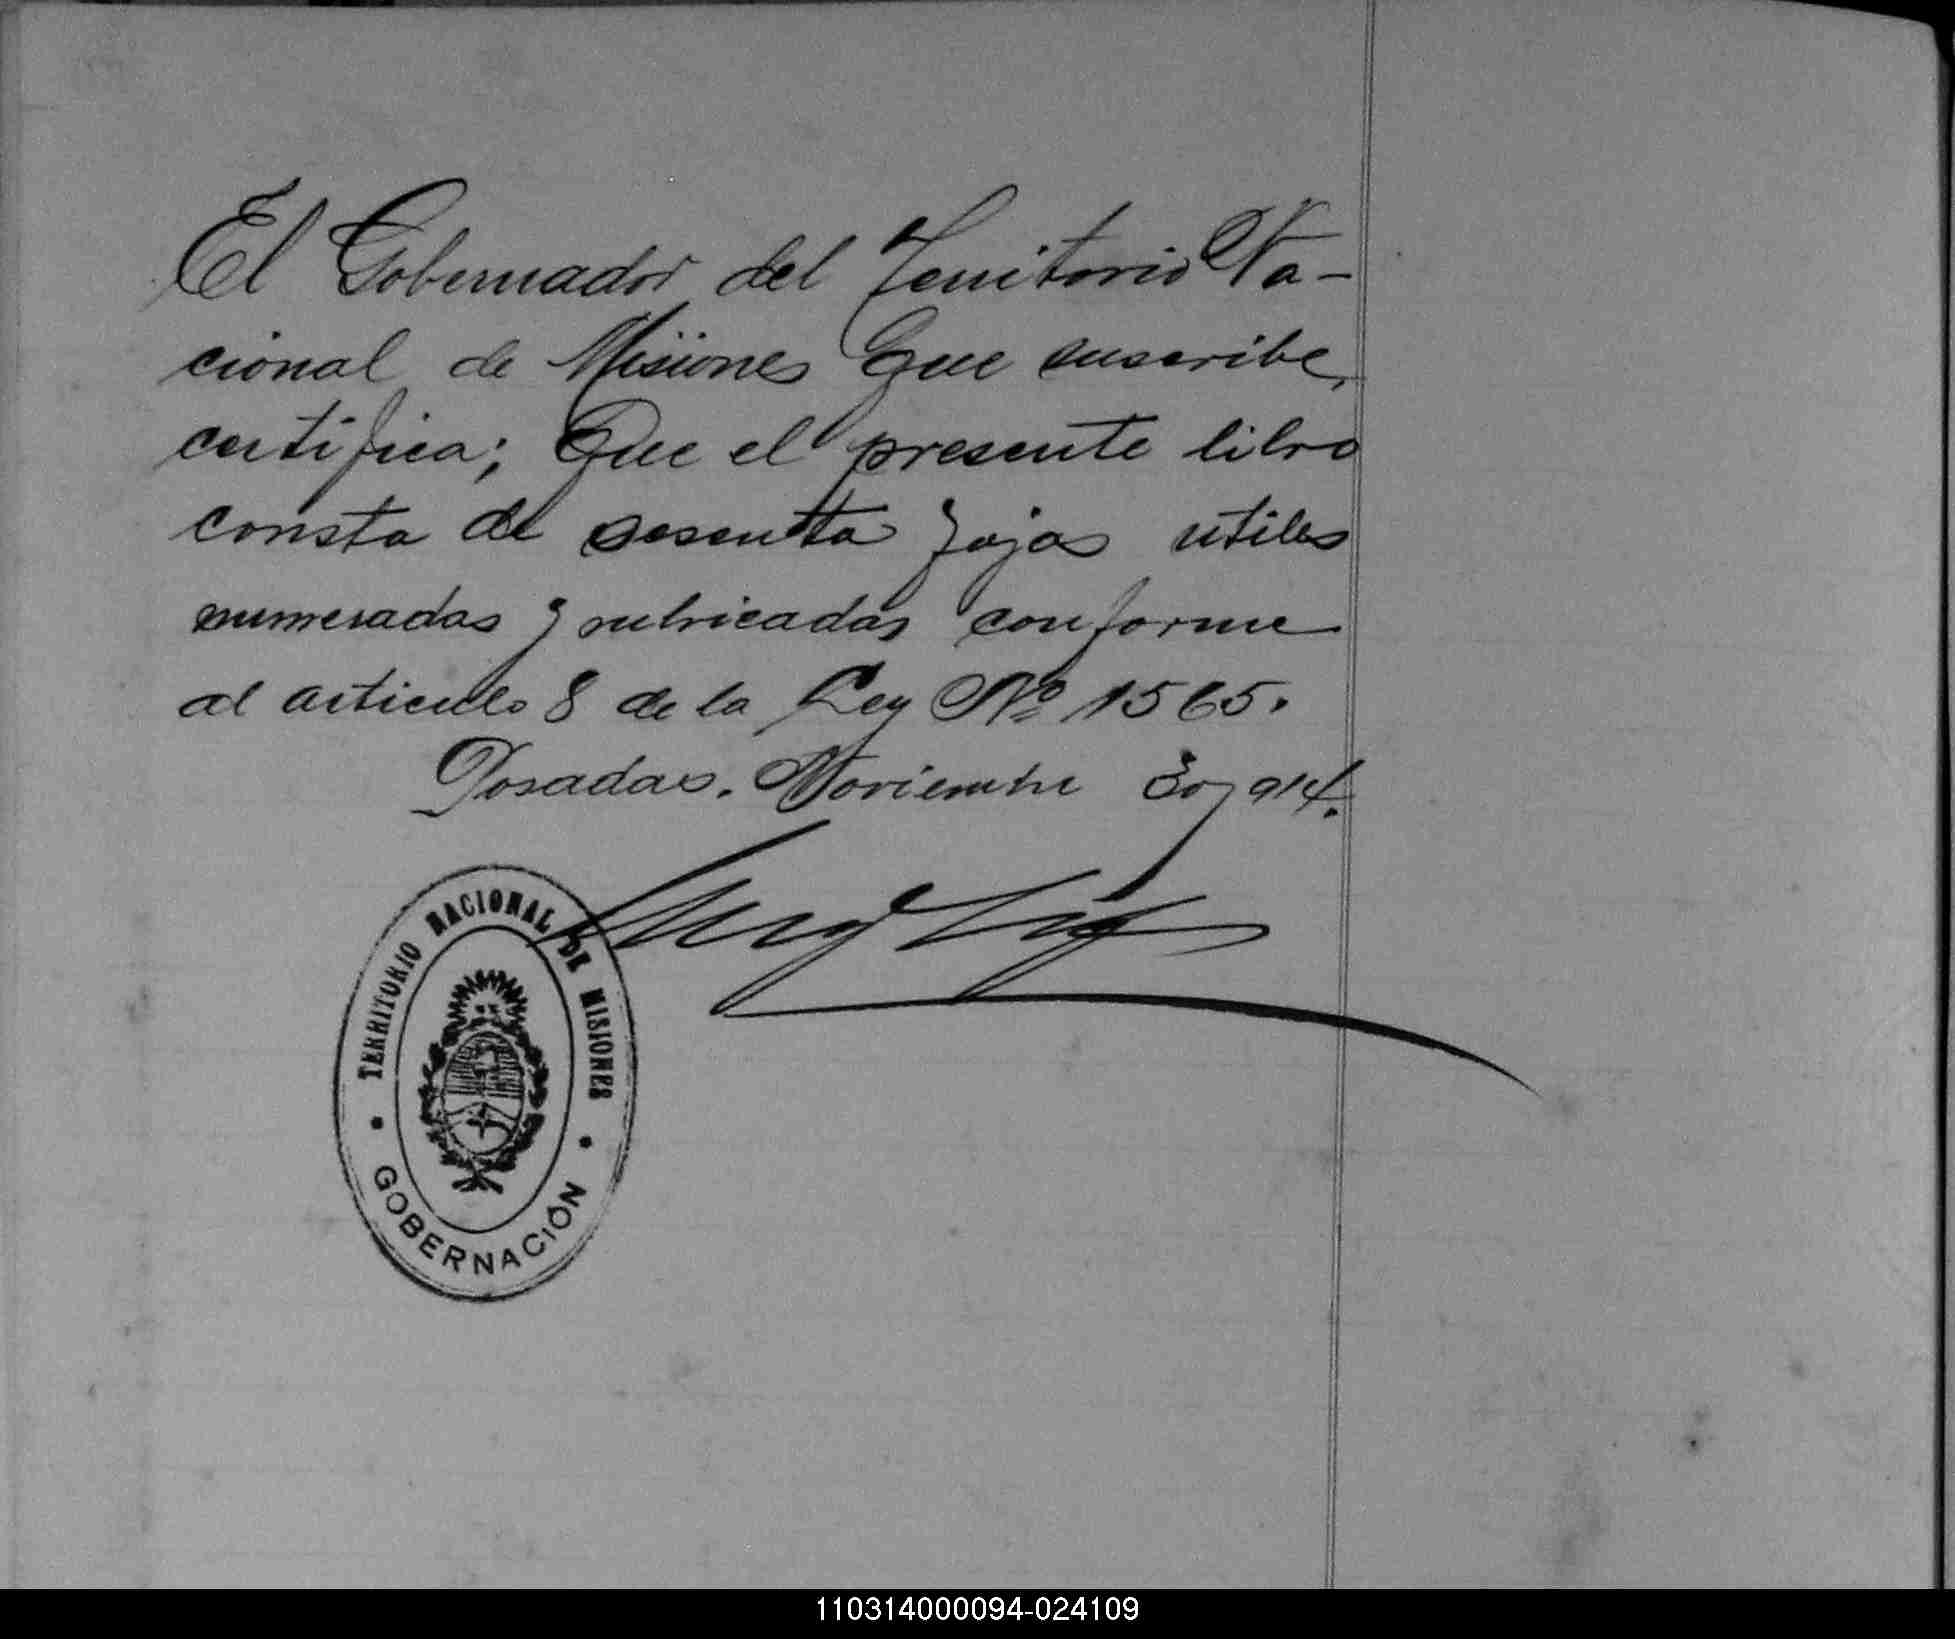 El Gobernador del Territorio Na-
cional de Misiones que suscribe,
certifica; Que el presente libro
consta de sesenta fojas utiles
numeradas y rubricadas conforme
al articulo 8 de la Ley Nº 1565.
Posadas. Noviembre 30/914.
TERRITORIO NACIONAL DE MISIONES
GOBERNACIÓN
110314000094-024109